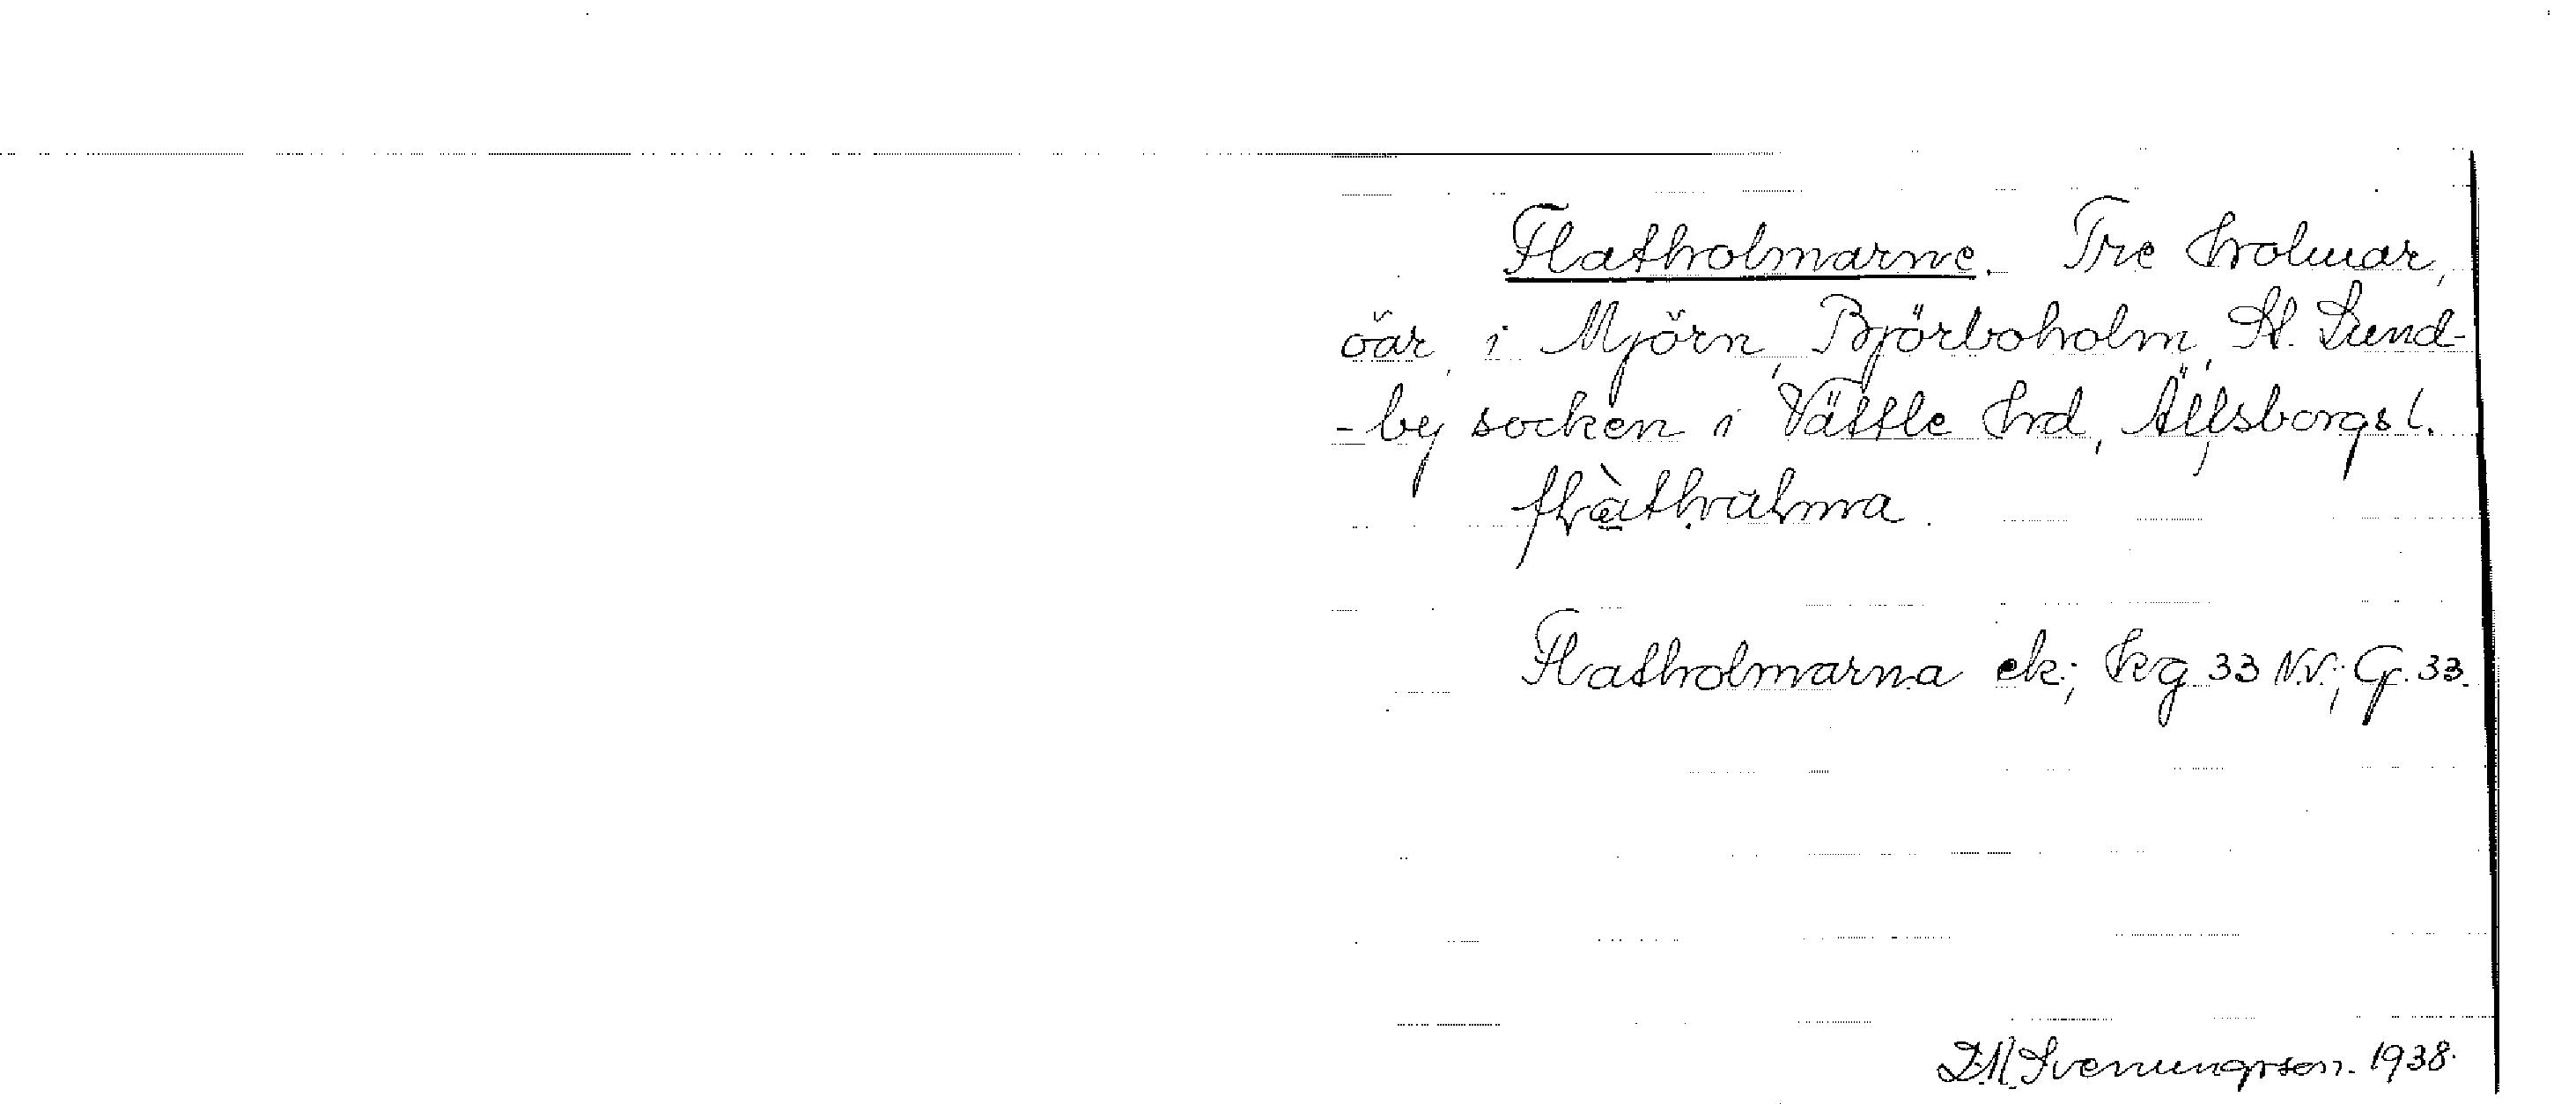 Flatholmarne. Tre holmar,
öar, i Mjörn, Björboholm, St. Lund-
-by socken i Vättle hrd, Älfsborgs l.
Flatholmarna ek; kg 33 N.V.; G. 33.
Svenungsson. 1938.